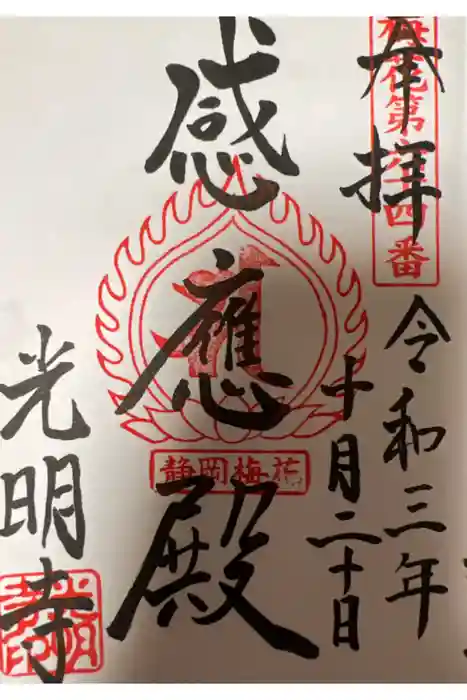 奉拝
梅花第
十四番
令和三年
十月二十日
感應殿
静岡梅花
光明寺